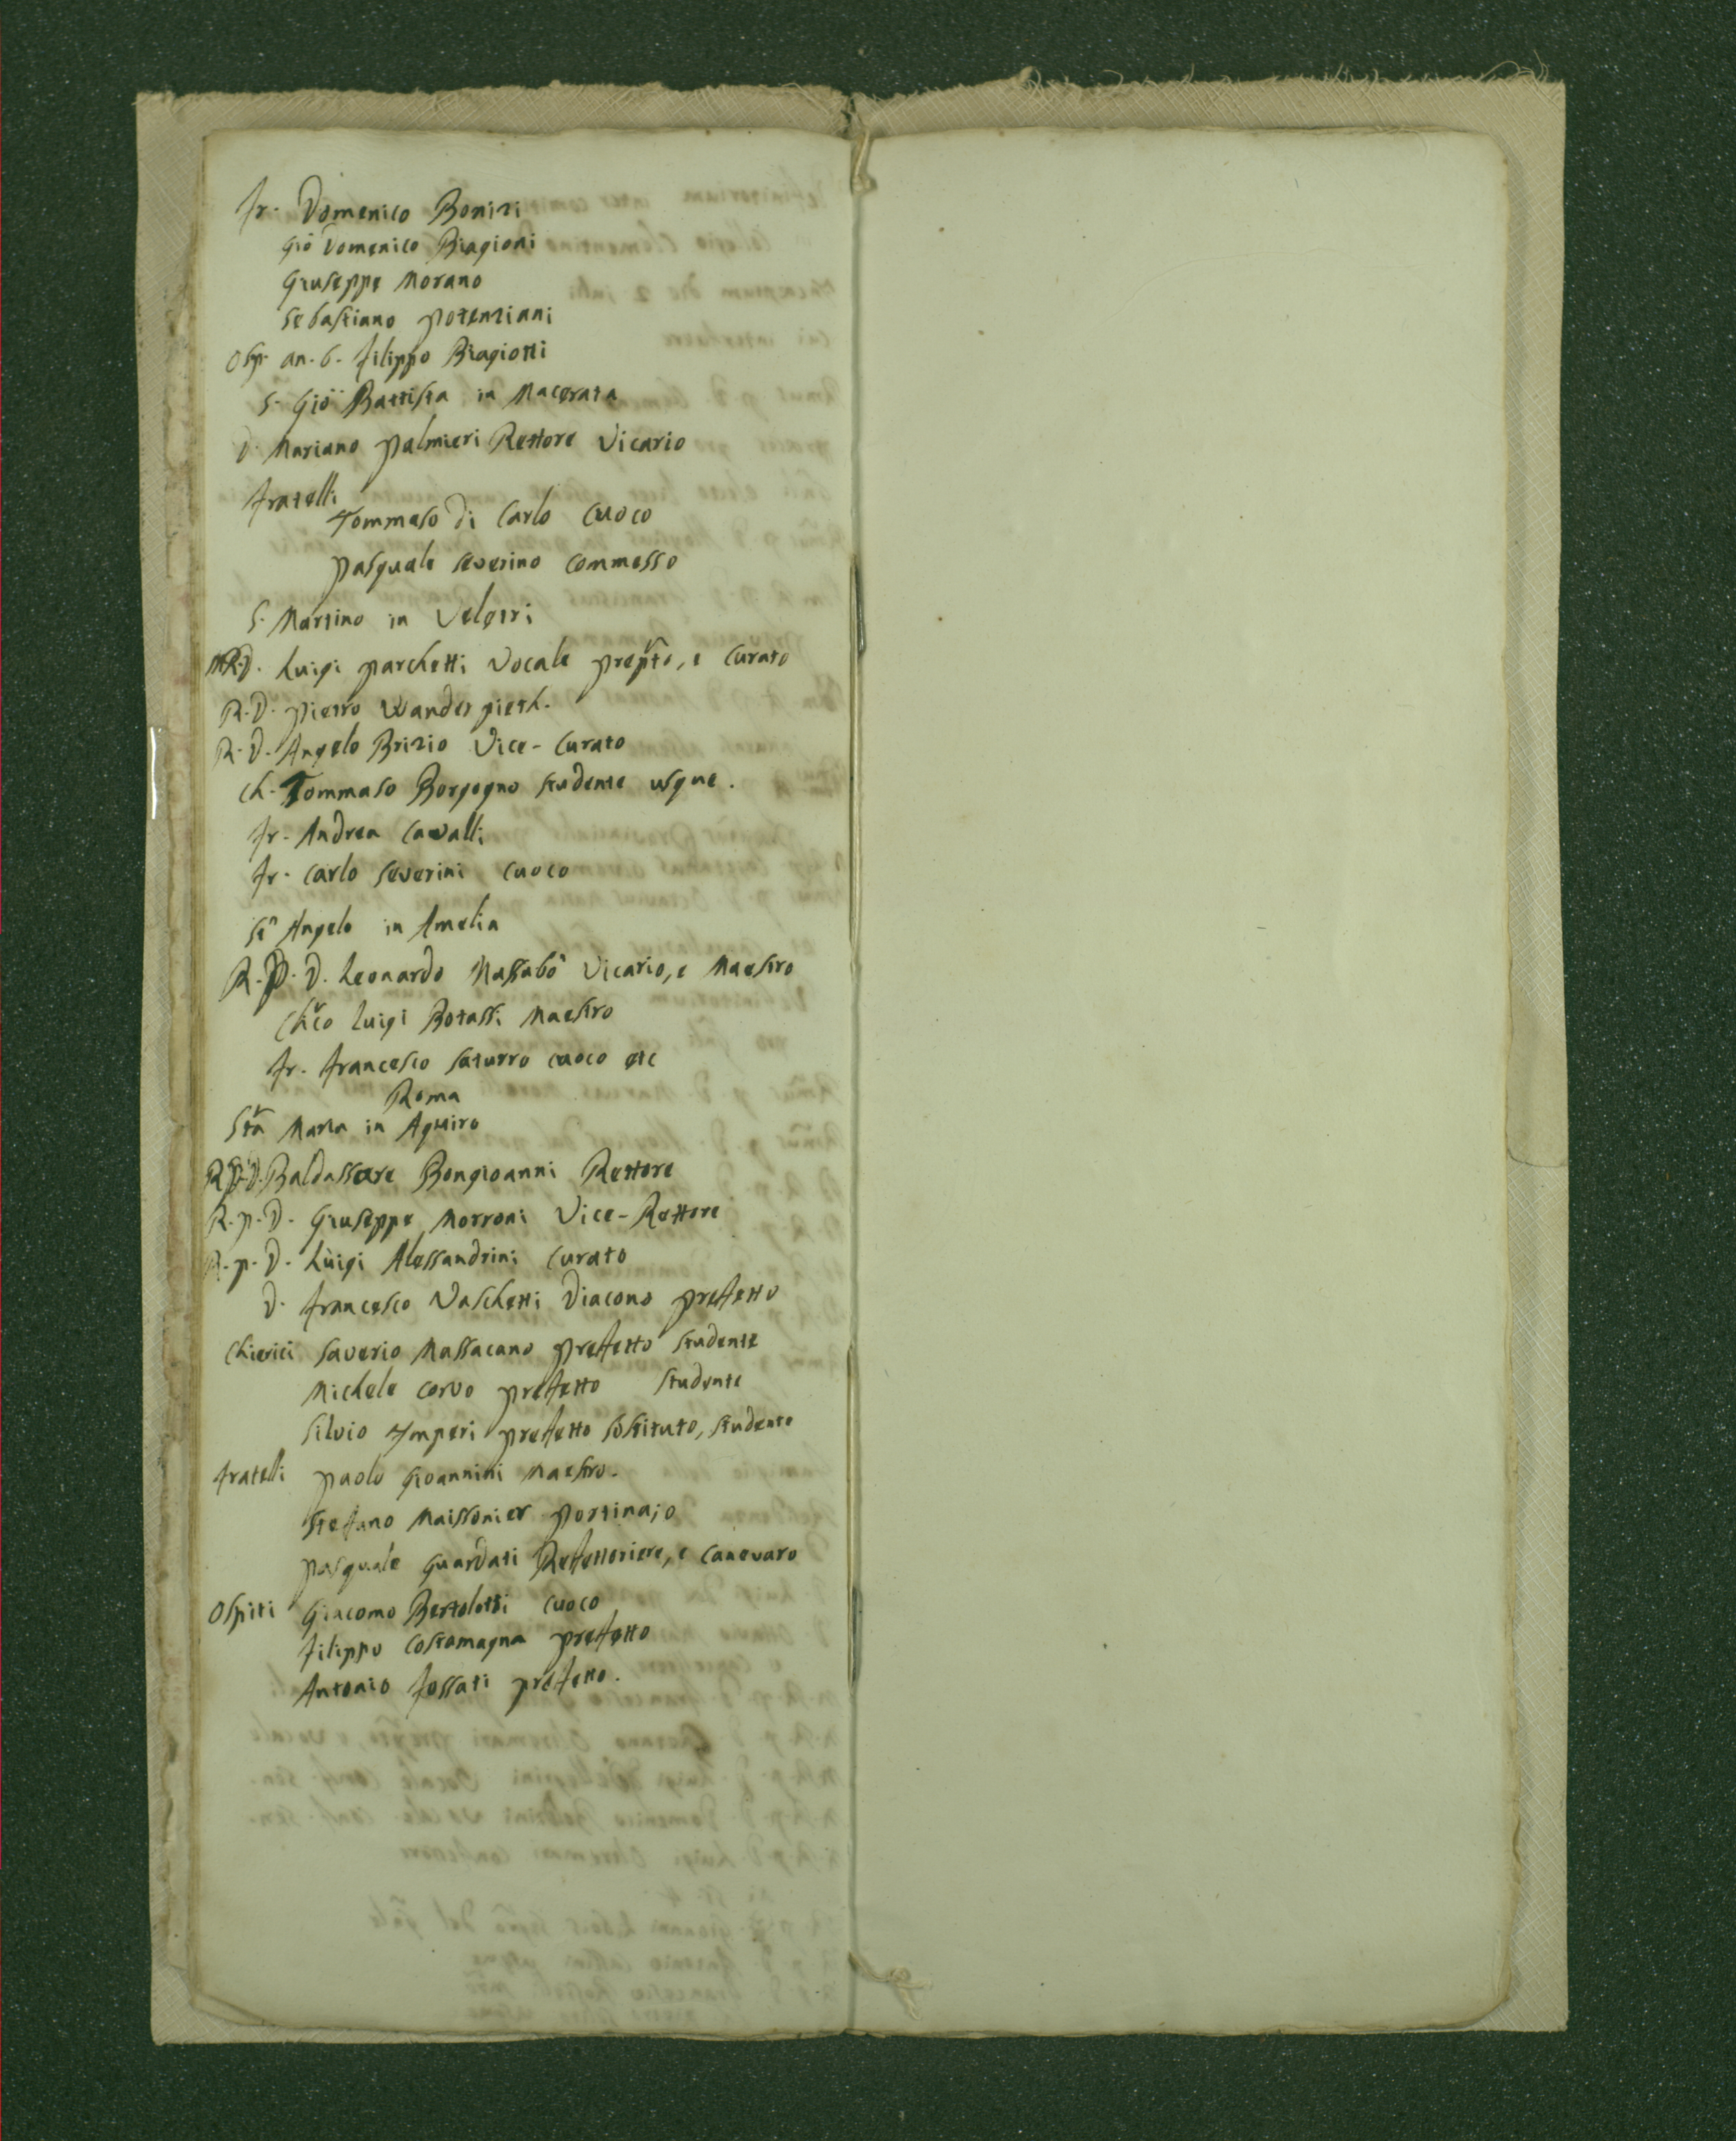 Fr. Domenico Bonizi
Gio Domenico Biagioni
Giuseppe Morano
Sebastiano Potenziani
Osp. an. 6. Filippo Biagiotti
S. Gio Battista in Macerata
D. Mariano Palmieri Rettore Vicario
Fratelli
Tommaso di Carlo Cuoco
Pasquale Severino Commesso
S. Martino in Veletri
M.R.D. Luigi Parchetti Vocale Prepto, e Curato
R.D. Pietro Wander pieth.
R.D. Angelo Brizio Vice-Curato
Ch. Tommaso Borgogno Studente usque.
Fr. Andrea Cavalli
Fr. Carlo Severini Cuoco
St Angelo in Amelia
R.P.D. Leonardo Massabò Vicario, e Maestro
Chco Luigi Botassi Maestro
Fr. Francesco Saturro cuoco etc
Roma
Sta Maria in Aquiro
R.P.D. Baldassare Bongioanni Rettore
R.P.D. Giuseppe Morroni Vice-Rettore
R.P.D. Luigi Alessandrini Curato
D. Francesco Vaschetti Diacono Prefetto
Chierici Saverio Massacano Prefetto Studente
Michele Corvo Prefetto Studente
Silvio Imperi Prefetto Sostituto, Studente
Fratelli Paolo Gioannini Maestro.
Stefano Maissonier Portinajo
Pasquale Guardati Refettoriere, e Canevaro
Ospiti Giacomo Bertolotti Cuoco
Filippo Costamagna Prefetto
Antonio Fossati Prefetto.